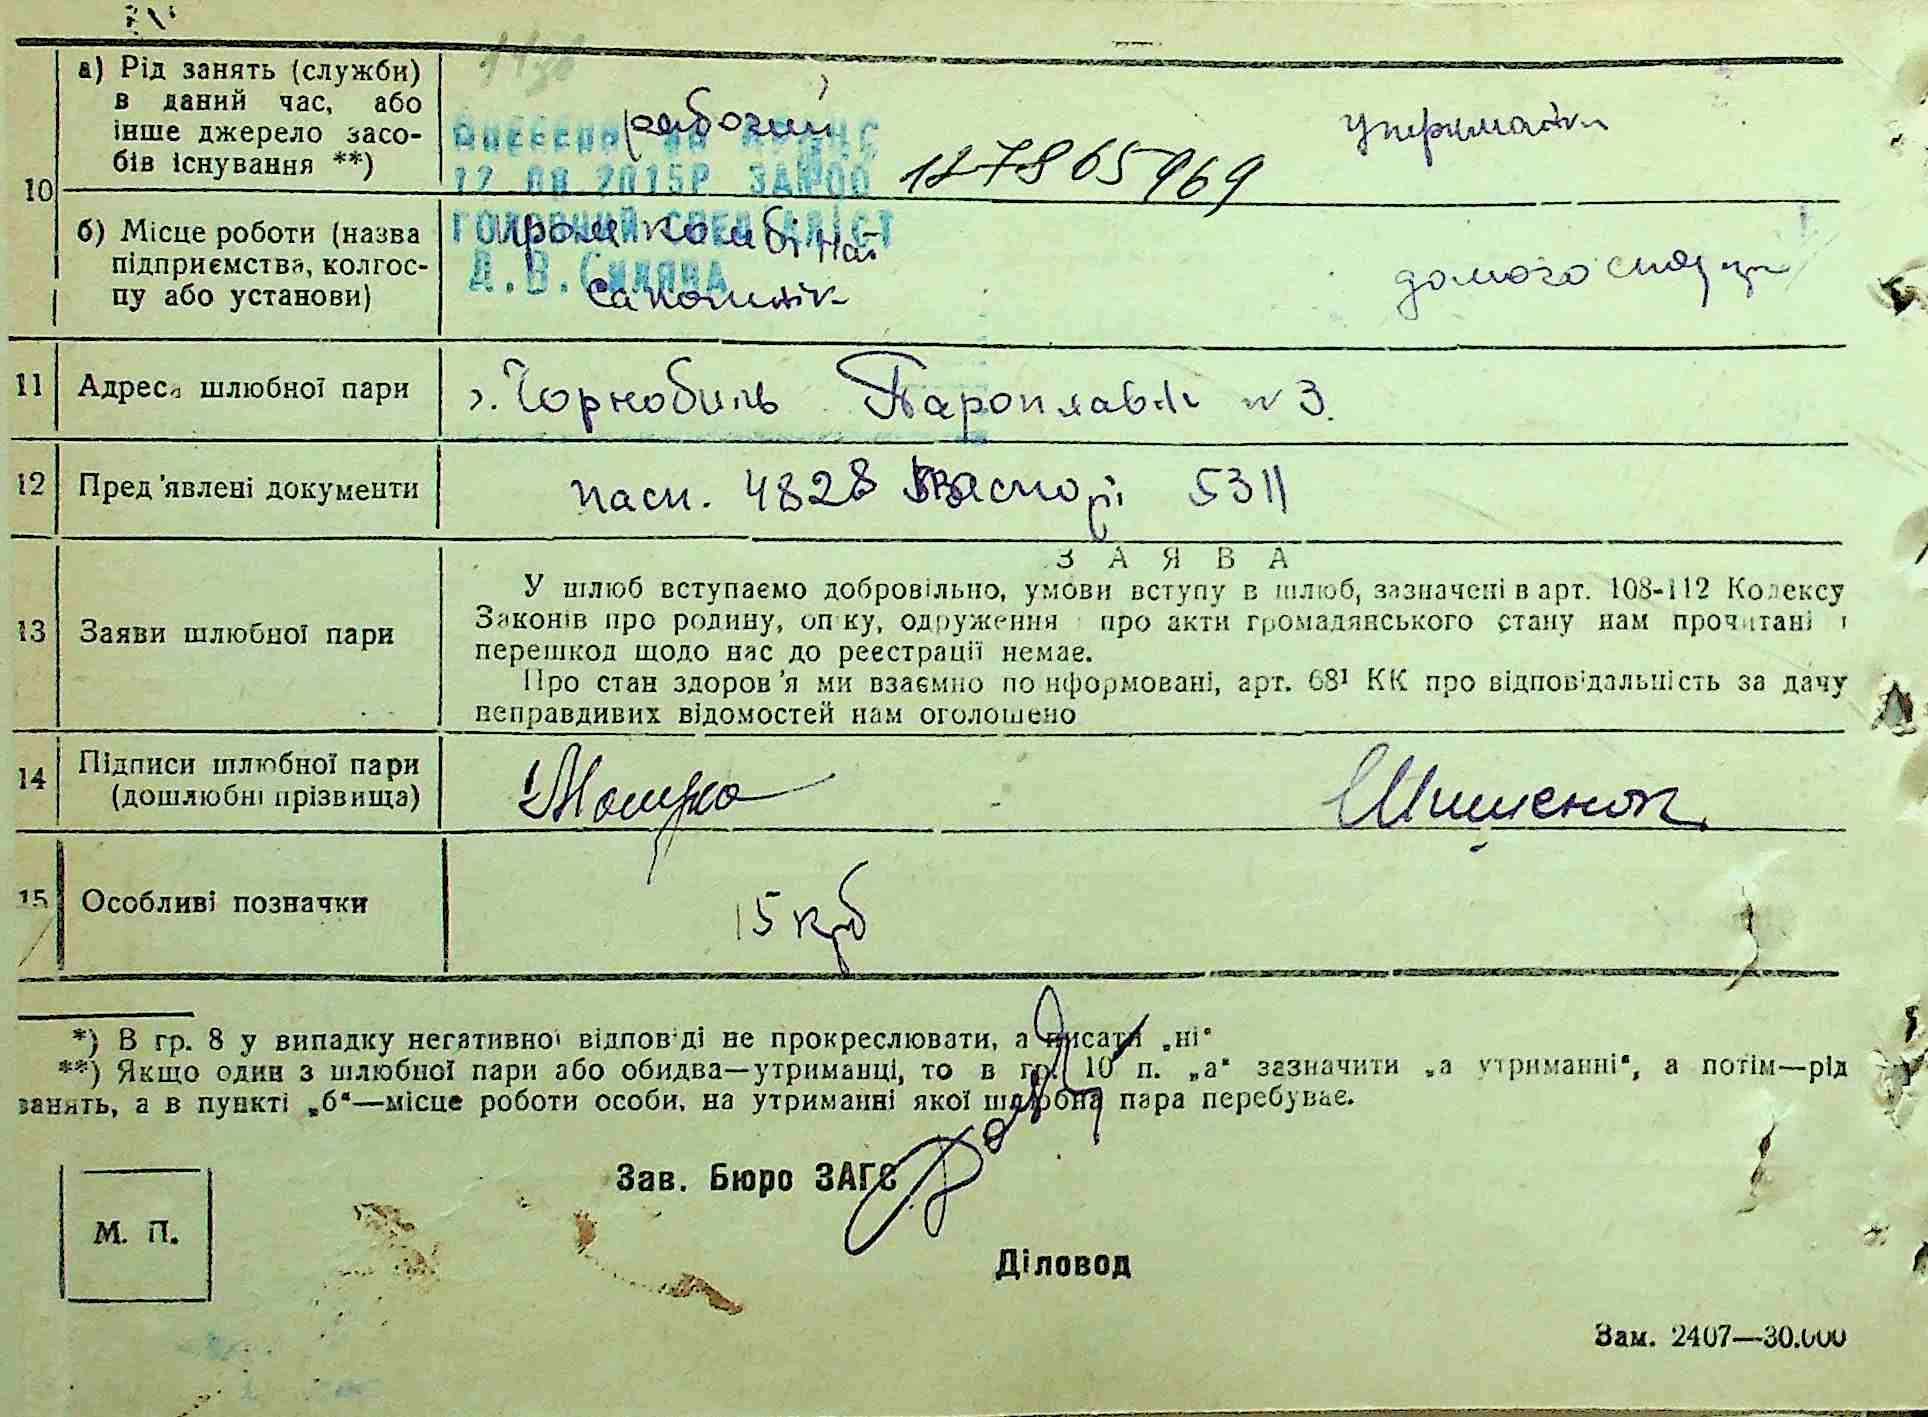 10
а) Рід занять (служби)
в даний час, або
інше джерело засо-
бів існування **)
рабочий
ДРАЦС
12 08 2015Р.
127865969
б) Місце роботи (назва
підприємства, колгос-
пу або установи)
ГОЛОВНИЙ СПЕЦІАЛІСТ
промкомбінат
11 Адреса шлюбної пари
г. Чорнобиль Пароплавн №3.
12 Пред'явлені документи
пасп. 4828 5311
З А Я В А
13 Заяви шлюбної пари
У шлюб вступаємо добровільно, умови вступу в шлюб, зазначені в арт. 108-112 Кодексу
Законів про родину, опіку, одруження і про акти громадянського стану нам прочитані і
перешкод щодо нас до реєстрації немає.
Про стан здоров'я ми взаємно поінформовані, арт. 68¹ КК про відповідальність за дачу
неправдивих відомостей нам оголошено
14 Підписи шлюбної пари
(дошлюбні прізвища)
Шишенок
15 Особливі позначки
15 крб
*) В гр. 8 у випадку негативної відповіді не прокреслювати, а писати „ні“
**) Якщо один з шлюбної пари або обидва—утриманці, то в гр. 10 п. „а“ зазначити „а утриманні“, а потім—рід
занять, а в пункті „б“—місце роботи особи, на утриманні якої шлюбна пара перебуває.
Зав. Бюро ЗАГС
М. П.
Діловод
Зам. 2407—30.000